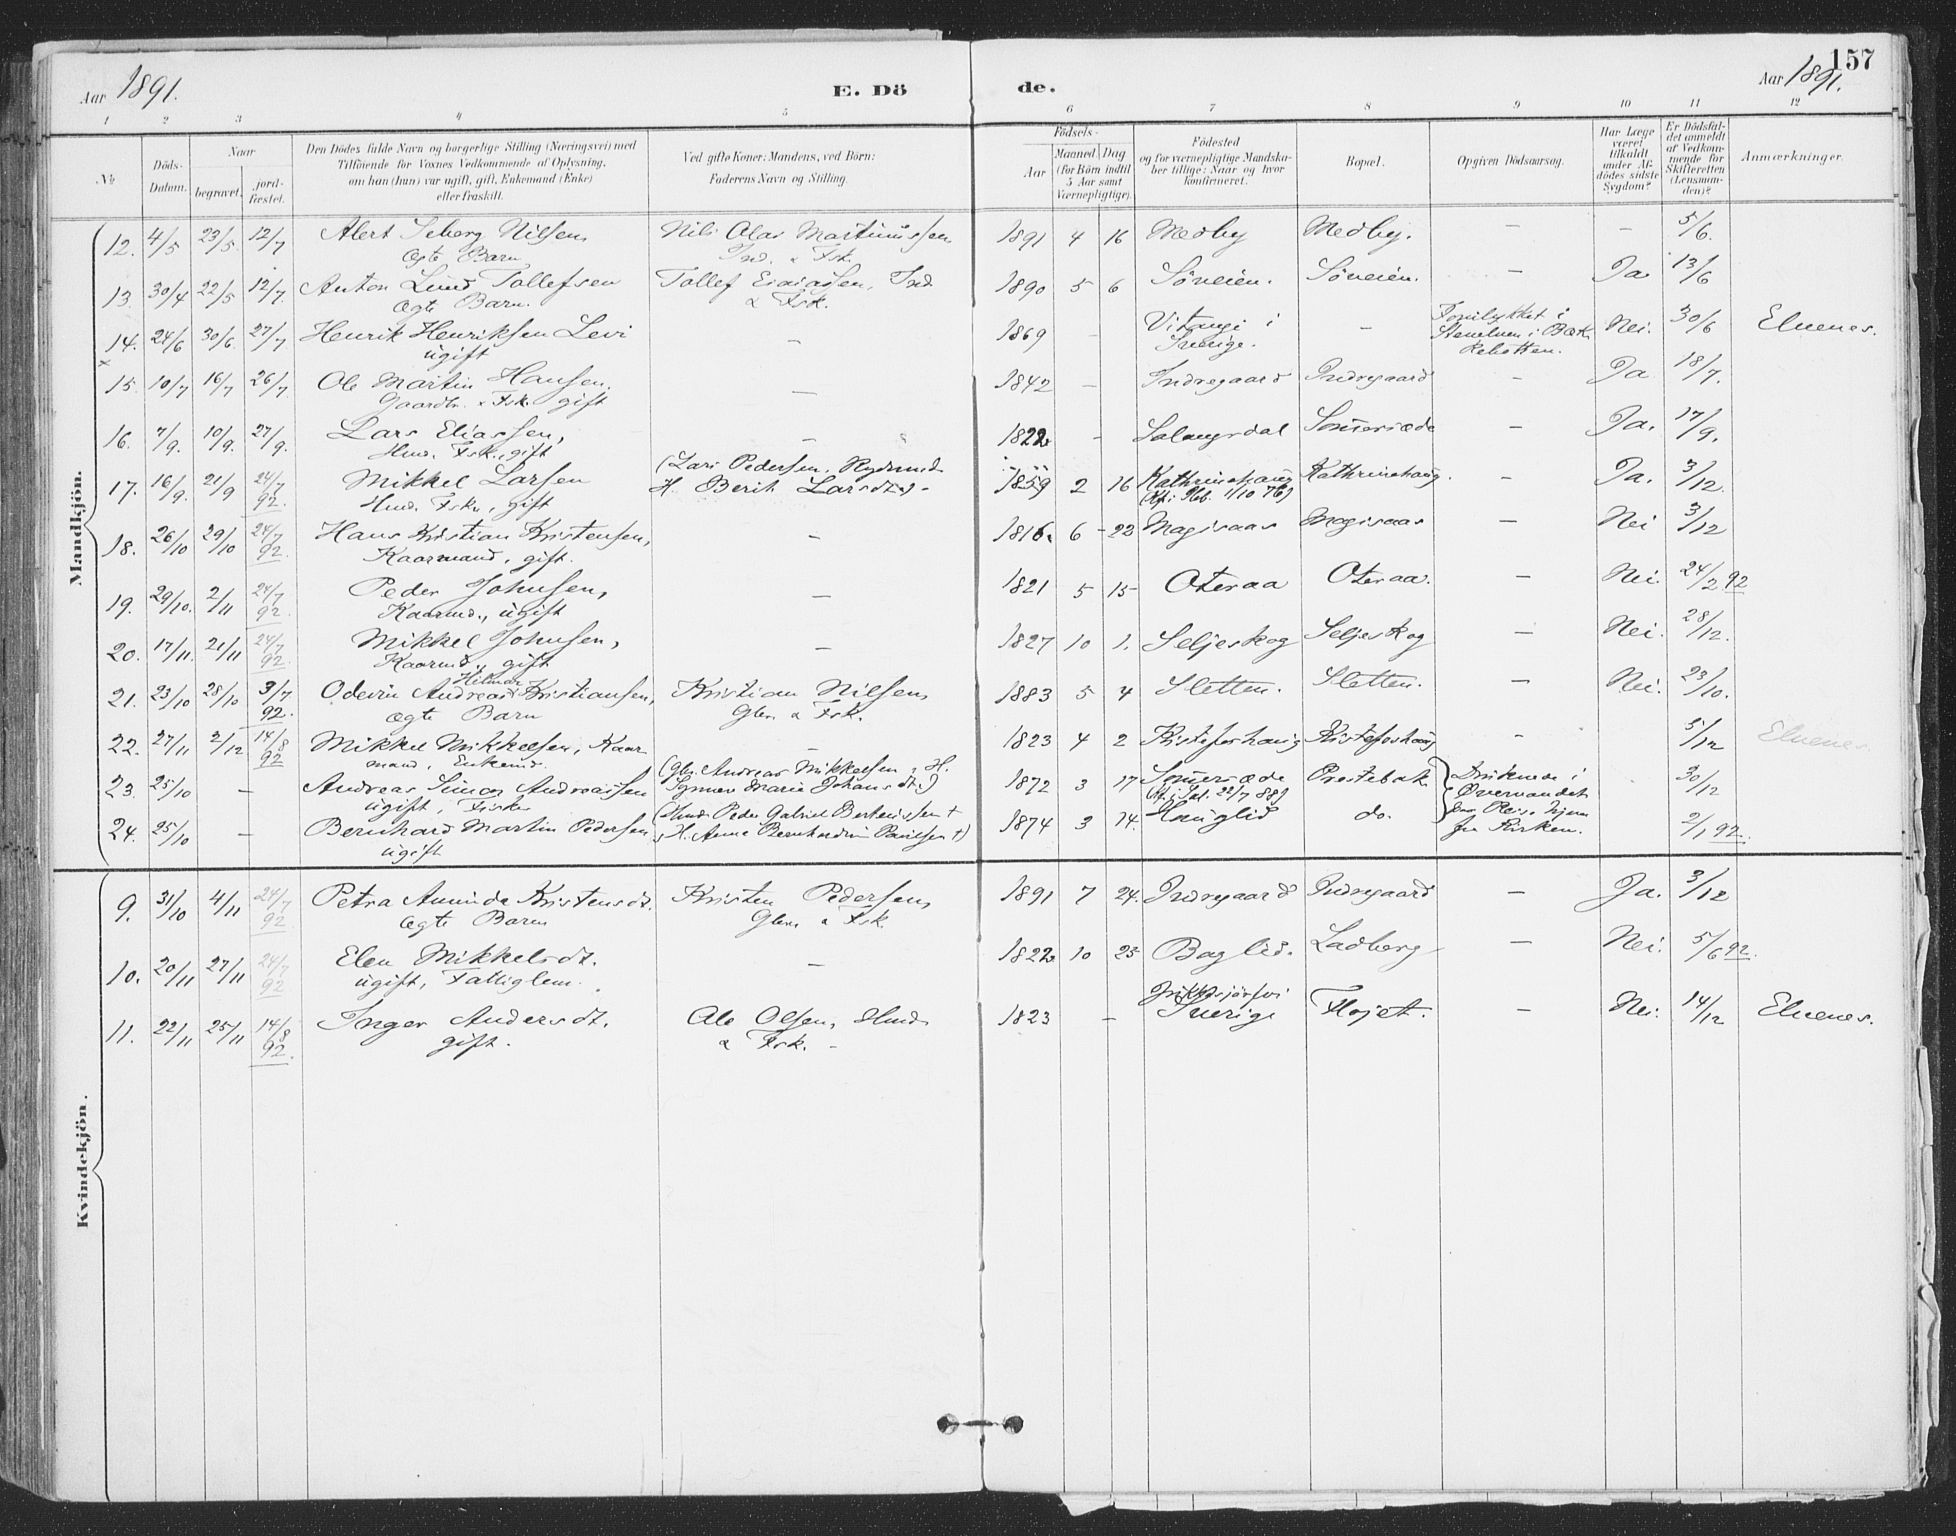 157
Aar 1891.
E. Dö
de.
Aar 1891.
1 2 3 4 5 6 7 8 9 10 11 12
№
Döds-Datum.
Naar
begravet.
jord-fæstet.
Den Dödes fulde Navn og borgerlige Stilling (Næringsvei) med
Tilföiende for Voxnes Vedkommende af Oplysning,
om han (hun) var ugift, gift, Enkemand (Enke)
eller fraskilt.
Ved gifte Koner: Mandens, ved Börn:
Faderens Navn og Stilling.
Födsels-
Aar
Maaned Dag
(for Börn indtil
5 Aar samt
Værnepligtige).
Födested
og for værnepligtige Mandska-
ber tillige: Naar og hvor
konfirmeret.
Bopæl.
Opgiven Dödsaarsag.
Har Læge
været
tilkaldt
under Af-
dödes sidste
Sygdom?
Er Dödsfal-
det anmeldt
af Vedkom-
mende for
Skifteretten
(Lensman-
den)?
Anmærkninger.
Mandkjön.
12. 4/5 23/5 12/7 Alert Seberg Nilsen Nils Olai Martinussen 1891 4 16 Medby Medby. - - 5/6.
ægte Barn Ind. & Fsk.
13. 30/4 22/5 12/7. Anton Lund Tollefsen Tollef Esaiassen, Ind 1890 5 6 Söveien. Söveien. - Ja 13/6
ægte Barn. & Fsk.
14. 24/6 30/6. 27/7 Henrik Henriksen Levi - 1869 Vitangi i Sverige. - Nei. 30/6 Elvenes.
ugift
15. 10/7 16/7 26/7. Ole Martin Hansen. - 1842 - Indregaard Indregaard - Ja 18/7.
Gaardbr. & Fsk. gift
16. 7/9. 10/9. 27/9. Lars Eliassen, - 1822 - Salangsdal - Ja. 17/9.
Hmd. Fsk., gift
17. 16/9. 21/9 24/7 92. Mikkel Larsen (Lars Pedersen, 1859 2 16 Kathrinehaug Kathrinehaug. - Ja. 3/12.
Hmd. Fsk., gift H. Berit Larsdt.) (Kf. i Ibb. 1/10 76)
18. 26/10 29/10 24/7 92. Hans Kristian Kristensen, - 1816. 6 - 22 Magisaas Magisaas - Nei 3/12
Kaarmand, gift.
19. 29/10. 2/11 24/7 92. Peder Johnsen, - 1821 5 15 Oteraa Oteraa. - Nei. 24/2 92
Kaarmd., ugift
20. 17/11. 21/11 24/7 92. Mikkel Johnsen, - 1827 10 1. Seljeskog Seljeskog - Nei. 28/12.
Kaarmd., gift
21. 23/10 28/10 3/7 92. Odevin Andreas Hilmar Kristiansen, Kristian Nilsen, 1883 5 4 Sletten. Sletten. - Nei. 23/10.
ægte Barn Gbr. & Fsk.
22. 27/11 2/12 14/8 92 Mikkel Mikkelsen, Kaar - 1823 4 2 Kistefoshaug Kistefoshaug - 5/12 Elvenes.
mand, Enkemd.
23. 25/10 - Andreas Simon Andreassen (Gbr. Andreas Mikkelsen, H. 1872 3 17 Prestebak 30/12
ugift, Fisker Marie Johansdt.) 22/7 88)
24. 25/10 - Bernhard Martin Pedersen (Hmd. Peder Gabriel † 1874 3 14. Hauglid do. 2/1 92.
ugift H. Anne Bernhardine †)
Kvindekjön.
9. 31/10 4/11 24/7 92 Petra Aminda Kristensdt. Kristen Pedersen, 1891 7 24. Indregaard Indregaard - Ja. 3/12
ægte Barn Gbr. & Fsk.
10. 20/11 27/11 24/7 92 Elen Mikkelsdt. - 1822 10 25 Baglid. Ladberg - Nei. 5/6 92.
ugift, Fattiglem.
11. 22/11 25/11 14/8 92. Inger Andersdt. Ole Olsen, Hmd. 1823 - Sverige Flojet. - Nei. 14/12 Elvenes.
gift. & Fsk. -